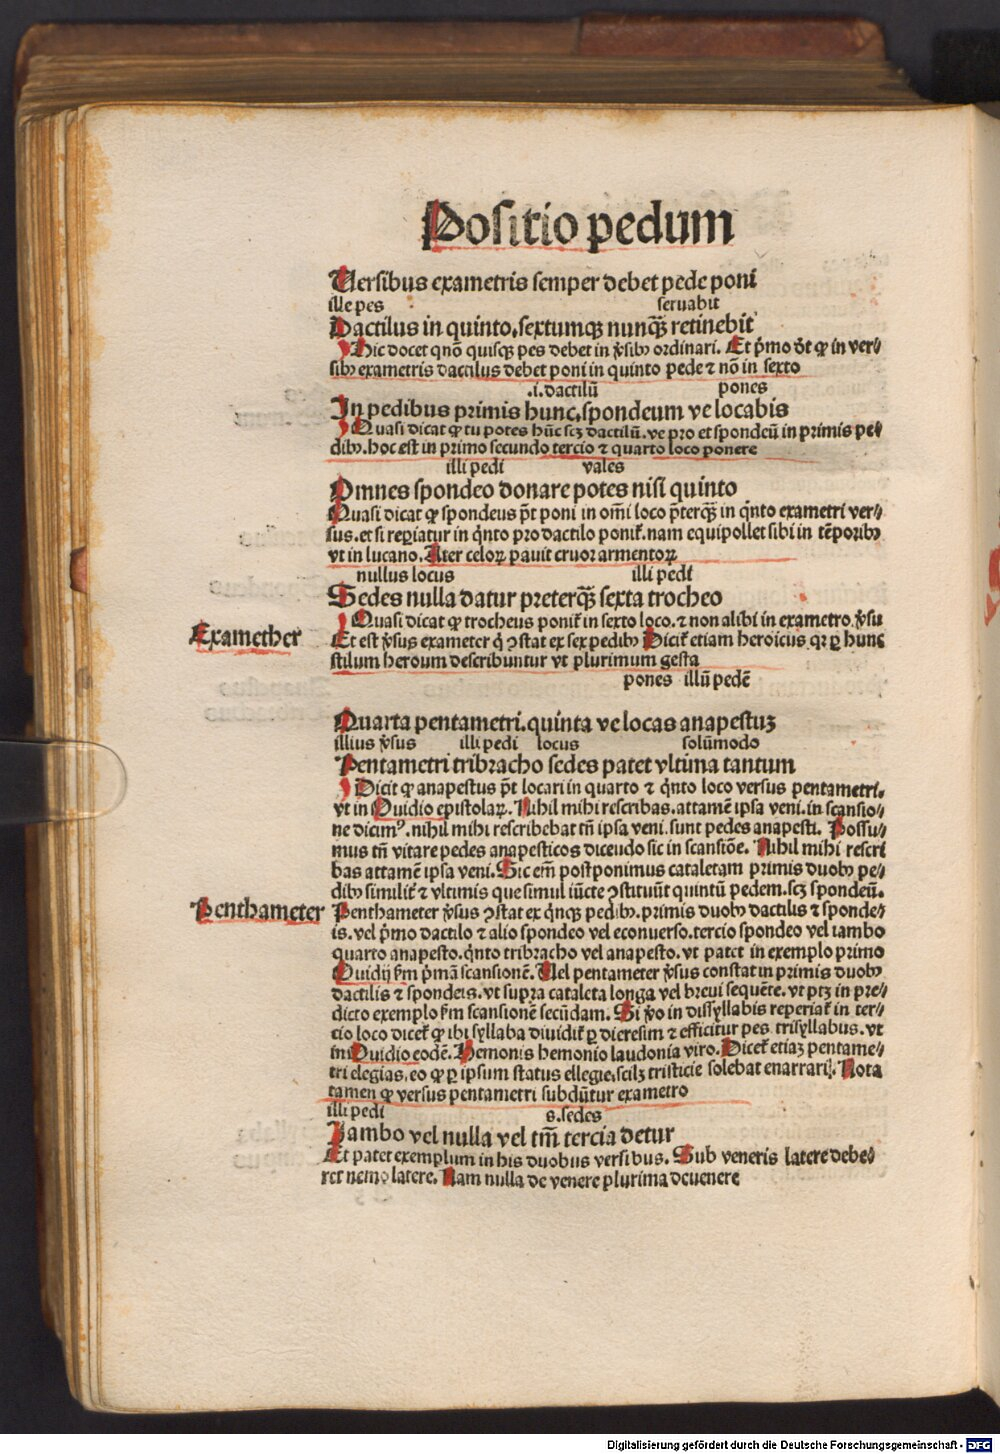 Positio pedum
Uersibus exametris semper debet pede poni
ille pes seruabit
Dactilus in quinto.sextumqꝫ nunqᷓꝫ retinebit
Hic docet qnō quisqꝫ pes debet in v̄sibꝰ ordinari. Et p̄mo dt̄ ꝙ in ver⸗
sibꝰ exametris dactilus debet poni in quinto pede ⁊ nō in sexto
.i.dactilū pones
In pedibus primis hunc.spondeum ve locabis
Quasi dicat ꝙ tu potes hūc scꝫ dactilū.ve pro et spondeū in primis pe⸗
dibꝰ.hoc est in primo secundo tercio ⁊ quarto loco ponere
illi pedi vales
Omnes spondeo donare potes nisi quinto
Quasi dicat ꝙ spondeus pt̄ poni in om̄i loco p̄terqᷓꝫ in qͥnto exametri ver⸗
sus.et si reꝑiatur in qͥnto pro dactilo ponit̄.nam equipollet sibi in tēporibꝰ
vt in lucano. Ater celoꝝ pauit cruor armentoꝝ
nullus locus illi pedi
Sedes nulla datur preterqᷓꝫ sexta trocheo
Quasi dicat ꝙ trocheus ponit̄ in sexto loco.⁊ non alibi in exametro v̄su
Examether
Et est v̄sus exameter qͥ ꝯstat ex sex pedibꝰ Dicit̄ etiam heroicus qꝛ ꝑ hunc
stilum heroum describuntur vt plurimum gesta
pones illū pedē
Quarta pentametri.quinta ve locas anapestuꝫ
illius v̄sus illi pedi locus solūmodo
Pentametri tribracho sedes patet vltima tantum
Dicit ꝙ anapestus pt̄ locari in quarto ⁊ qͥnto loco versus pentametri.
vt in Ouidio epistolaꝝ. Nihil mihi rescribas.attamē ipsa veni.in scansio⸗
ne dicimꝰ.nihil mihi rescribebat tn̄ ipsa veni.sunt pedes anapesti. Possu⸗
mus tn̄ vitare pedes anapesticos dicendo sic in scansiōe. Nihil mihi rescri
bas attamē ipsa veni. Sic em̄ postponimus cataletam primis duobꝰ pe⸗
dibꝰ similit̄ ⁊ vltimis que simul iūcte ꝯstituūt quintū pedem.scꝫ spondeū.
Penthameter
Penthameter v̄sus ꝯstat ex qͥnqꝫ pedibꝰ.primis duobꝰ dactilis ⁊ sponde⸗
is.vel p̄mo dactilo ⁊ alio spondeo vel econuerso.tercio spondeo vel iambo
quarto anapesto.qͥnto tribracho vel anapesto.vt patet in exemplo primo
Ouidij ẜm p̄mā scansionē. Uel pentameter v̄sus constat in primis duobꝰ
dactilis ⁊ spondeis.vt supra cataleta longa vel breui sequēte.vt ptꝫ in pre⸗
dicto exemplo ẜm scansionē secūdam. Si v̄o in dissyllabis reperiat̄ in ter⸗
cio loco dicet̄ ꝙ ibi syllaba diuidit̄ ꝑ dieresim ⁊ efficitur pes trisyllabus.vt
in Ouidio eodē. Hemonis hemonio laudonia viro. Dicet̄ etiaꝫ pentame⸗
tri elegias.eo ꝙ ꝑ ipsum status ellegie.scilꝫ tristicie solebat enarrari. Nota
tamen ꝙ versus pentametri subdūtur exametro
illi pedi s.sedes
Iambo vel nulla vel tm̄ tercia detur
Et patet exemplum in his duobus versibus. Sub veneris latere debe⸗
ret nemo latere. Nam nulla de venere plurima deuenere
Digitalisierung gefördert durch die Deutsche Forschungsgemeinschaft - DFG